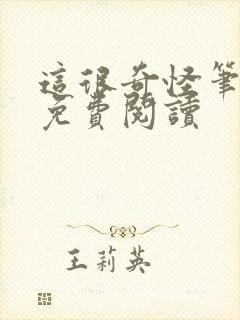 這很奇怪筆
免費閱讀
王莉英